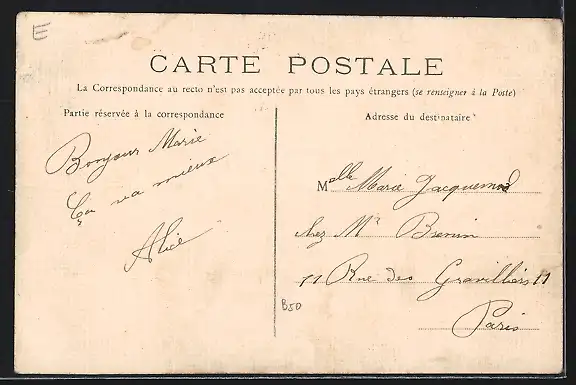 E
CARTE POSTALE
La Correspondance au recto n'est pas acceptée par tous les pays étrangers (se renseigner à la Poste)
Partie réservée à la correspondance
Adresse du destinataire
Bonjour Marie
Ça va mieux
Alice
Melle Marie Jacquemard
chez Mr
11 Rue des Gravilliers 11
Paris
B50